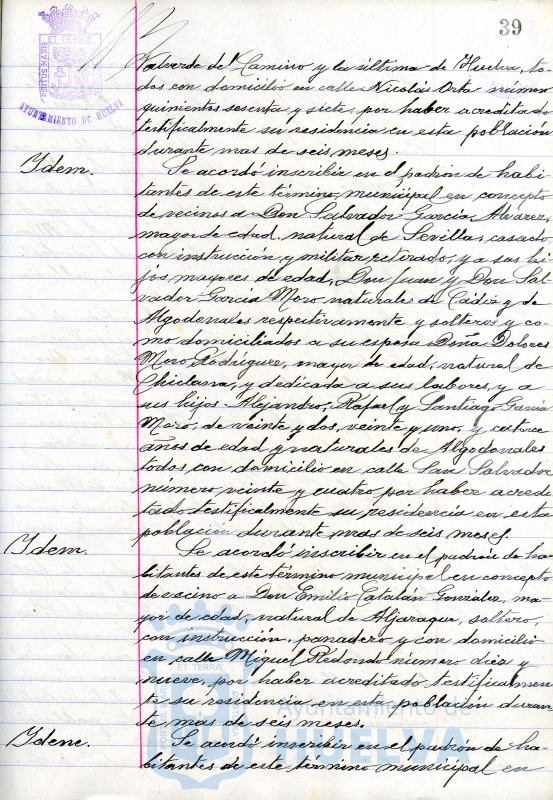 39
PORTUS MARIS
ET TERRÆ
AYUNTAMIENTO DE HUELVA
Valverde del Camino y la última de Huelva, to-
dos con domicilio en calle Nicolás Orta número
quinientos sesenta y siete, por haber acreditado
testificalmente su residencia en esta población
durante mas de seis meses.
Idem.
Se acordó inscribir en el padrón de habi-
tantes de este término municipal en concepto
de vecinos a Don Salvador García Alvarez,
mayor de edad, natural de Sevilla, casado
con instrucción y militar retirado, y a sus hi-
jos mayores de edad, Don Juan y Don Sal-
vador García Moro naturales de Cádiz y de
Algodonales respectivamente y solteros y co-
mo domiciliados a su esposa Doña Dolores
Moro Rodríguez, mayor de edad, natural de
Chiclana, y dedicada a sus labores, y a
sus hijos Alejandro, Rafael y Santiago García
Moro, de veinte y dos, veinte y uno, y catorce
años de edad y naturales de Algodonales
todos con domicilio en calle San Salvador
número veinte y cuatro por haber acredi-
tado testificalmente su residencia en esta
población durante mas de seis meses.
Idem.
Se acordó inscribir en el padrón de ha-
bitantes de este término municipal en concepto
de vecino a Don Emilio Catalán González, ma-
yor de edad, natural de Aljaraque, soltero,
con instrucción, panadero y con domicilio
en calle Miguel Redondo número diez y
nueve, por haber acreditado testificalmen-
te su residencia en esta población duran-
te mas de seis meses.
Idem.
Se acordó inscribir en el padrón de ha-
bitantes de este término municipal en
Ayuntamiento de
HUELVA